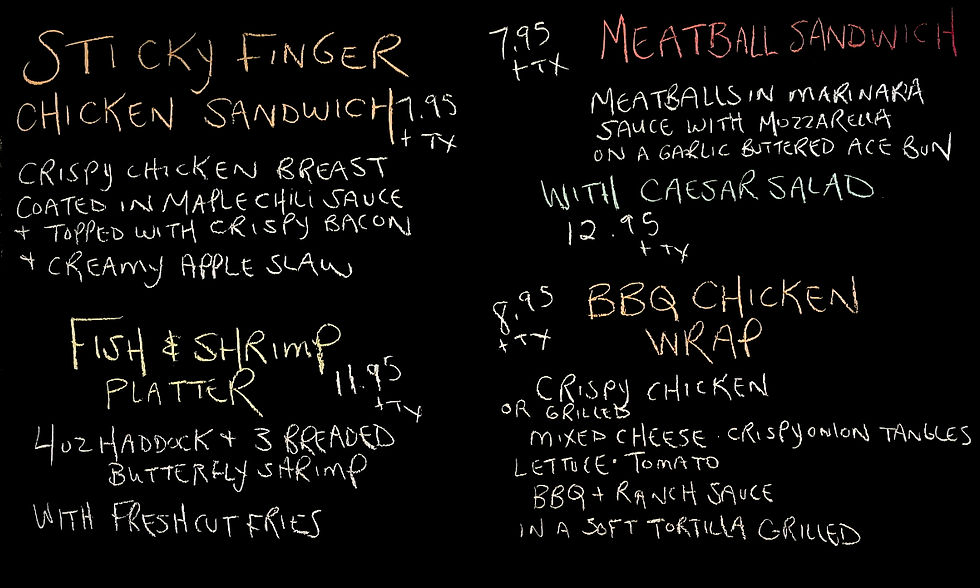 STICKY FINGER
CHICKEN SANDWICH 7.95
+ TX
CRISPY CHICKEN BREAST
COATED IN MAPLE CHILI SAUCE
+ TOPPED WITH CRISPY BACON
+ CREAMY APPLE SLAW
FISH & SHRIMP
PLATTER 11.95
+ TX
4 OZ HADDOCK + 3 BREADED
BUTTERFLY SHRIMP
WITH FRESH CUT FRIES
7.95 MEATBALL SANDWICH
+ TX
MEATBALLS IN MARINARA
SAUCE WITH MOZZARELLA
ON A GARLIC BUTTERED ACE BUN
WITH CAESAR SALAD
12.95
+ TX
8.95 BBQ CHICKEN
+ TX WRAP
CRISPY CHICKEN
OR GRILLED
MIXED CHEESE · CRISPY ONION TANGLES
LETTUCE · TOMATO
BBQ + RANCH SAUCE
IN A SOFT TORTILLA GRILLED